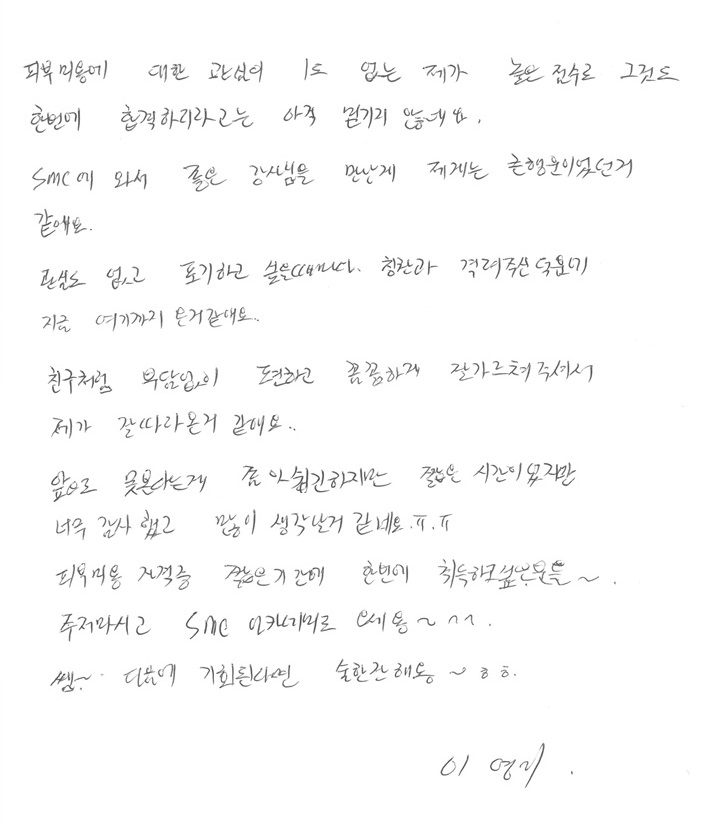 피부미용에 대한 관심이 1도 없는 제가 높은 점수로 그것도
한번에 합격하리라고는 아직 믿기지 않네요.
SMC에 와서 좋은 강사님을 만난게 제게는 큰행운이었던거
같애요.
관심도 없고 포기하고 싶을때마다. 칭찬과 격려주신덕분에
지금 여기까지 온거같애요..
친구처럼 부담없이 편하고 꼼꼼하게 잘가르쳐주셔서
제가 잘따라온거 같애요..
앞으로 못본다는게 좀 아쉽긴하지만 짧은 시간이였지만
너무 감사했고 많이 생각날거 같네요.ㅠ.ㅠ
피부미용 자격증 짧은기간에 한번에 취득하고싶은분들~.
주저마시고 SMC 아카데미로 오세용~^^.
쌤~. 다음에 기회된다면 술한잔해용~ㅎㅎ.
이 영